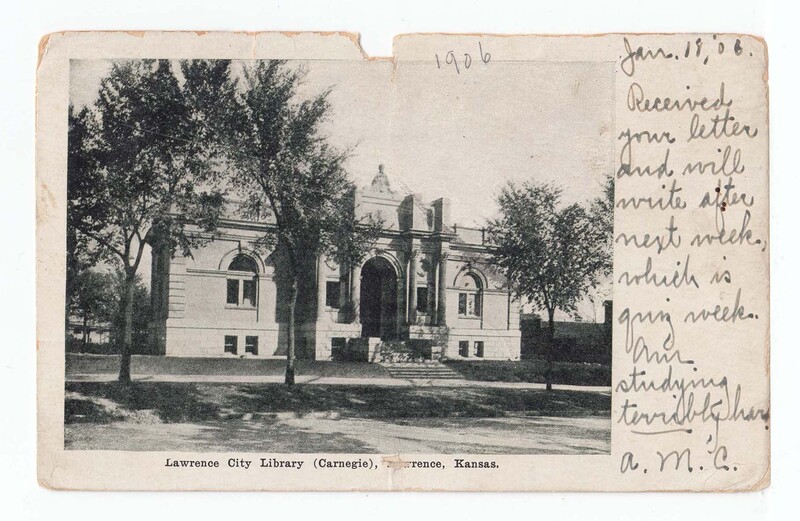 1906
Jan. 18, '06.
Received
your letter
and will
write after
next week,
which is
quiz week.
Am
studying
terribly har
A. M. C.
Lawrence City Library (Carnegie), rence, Kansas.